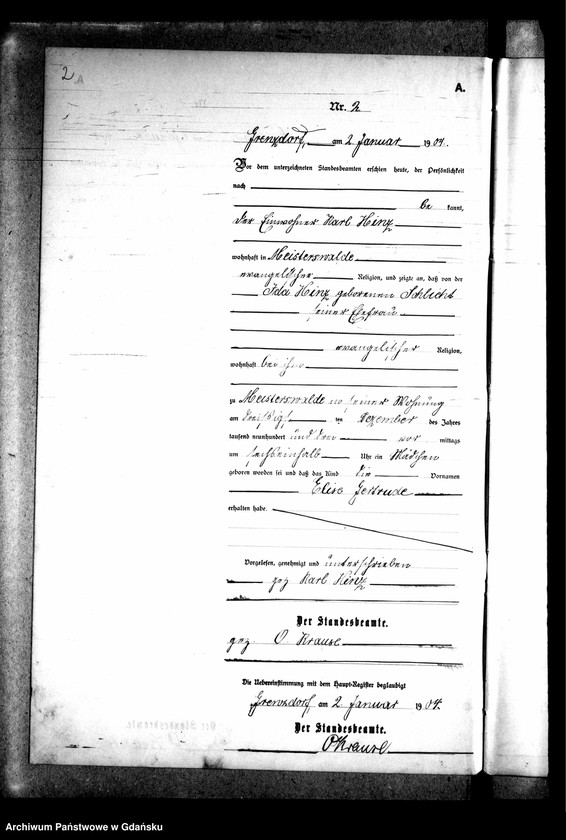 2
A.
Nr. 2
Grenzdorf, am 2 Januar 1904.
Vor dem unterzeichneten Standesbeamten erschien heute, der Persönlichkeit
nach
be kannt,
der Einwohner Karl Hinz
wohnhaft in Meisterswalde
evangelischer Religion, und zeigte an, daß von der
Ida Hinz geborenen Schlicht
seiner Ehefrau
evangelischer Religion,
wohnhaft bei ihm
zu Meisterswalde in seiner Wohnung
am dreißigsten Dezember des Jahres
tausend neunhundert und drei vor mittags
um sechseinhalb Uhr ein Mädchen
geboren worden sei und daß das Kind die Vornamen
Elise Gertrude
erhalten habe.
Vorgelesen, genehmigt und unterschrieben
gez Karl Hinz
Der Standesbeamte.
gez. O. Krause
Die Uebereinstimmung mit dem Haupt-Register beglaubigt
Grenzdorf, am 2. Januar 1904.
Der Standesbeamte.
O Krause
Archiwum Państwowe w Gdańsku